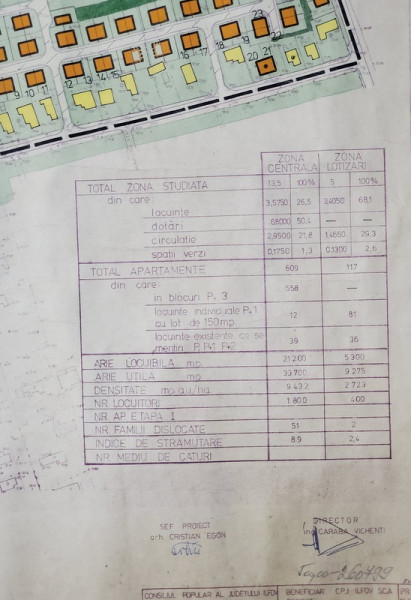 23
22
21
20
19
18
17
16
15
14
13
12
11
10
9
ZONA CENTRALA ZONA LOTIZARI
TOTAL ZONA STUDIATA 13,5 100% 5 100%
din care:
locuinte 3,5750 26,5 3,4050 68,1
dotări 6,8000 50,4 — —
circulatie 2,9500 21,8 1,4650 29,3
spatii verzi 0,1750 1,3 0,1300 2,6
TOTAL APARTAMENTE 609 117
din care:
in blocuri P+3 558 —
locuinte individuale P+1 12 81
cu lot de 150 mp.
locuinte existente ce se 39 36
mentin P, P+1, P+2
ARIE LOCUIBILA mp 21200 5300
ARIE UTILA mp 9275
DENSITATE mp au/ha 2729
NR LOCUITORI 1.800 400
NR. AP. ETAPA I
NR FAMILII DISLOCATE 51 2
INDICE DE STRAMUTARE 8,9 2,4
NR MEDIU DE CATURI
SEF PROIECT
arh. CRISTIAN EGON
DIRECTOR
ing. CARABA VICHENTI
CONSILIUL POPULAR AL JUDETULUI ILFOV BENEFICIAR C.P.J. ILFOV S.C.A.